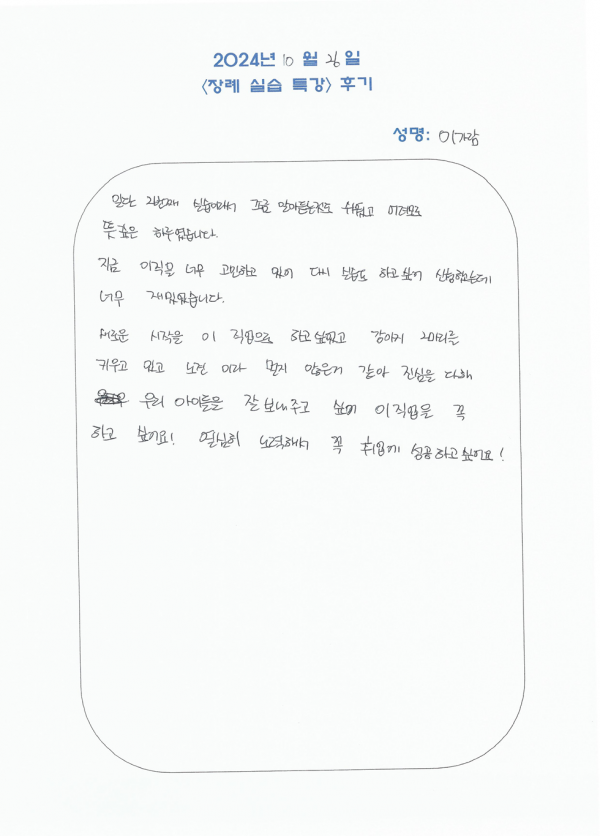 2024년 10 월 26 일
<장례 실습 특강> 후기
성명: 이가람
일단 2번째 실습이여서 그런 알아듣는것도 쉬웠고 여러모로
뜻 깊은 하루였습니다.
지금 이직을 너무 고민하고 있어 다시 실습도 하고싶어 신청했는데
너무 재밌었습니다.
새로운 시작을 이 직업으로 하고싶었고 강아지 2마리를
키우고 있고 노견 이라 멀지 않은거 같아 진심을 다해
우리 아이들을 잘 보내주고 싶어 이 직업을 꼭
하고 싶어요! 열심히 노력해서 꼭 취업에 성공 하고 싶어요!